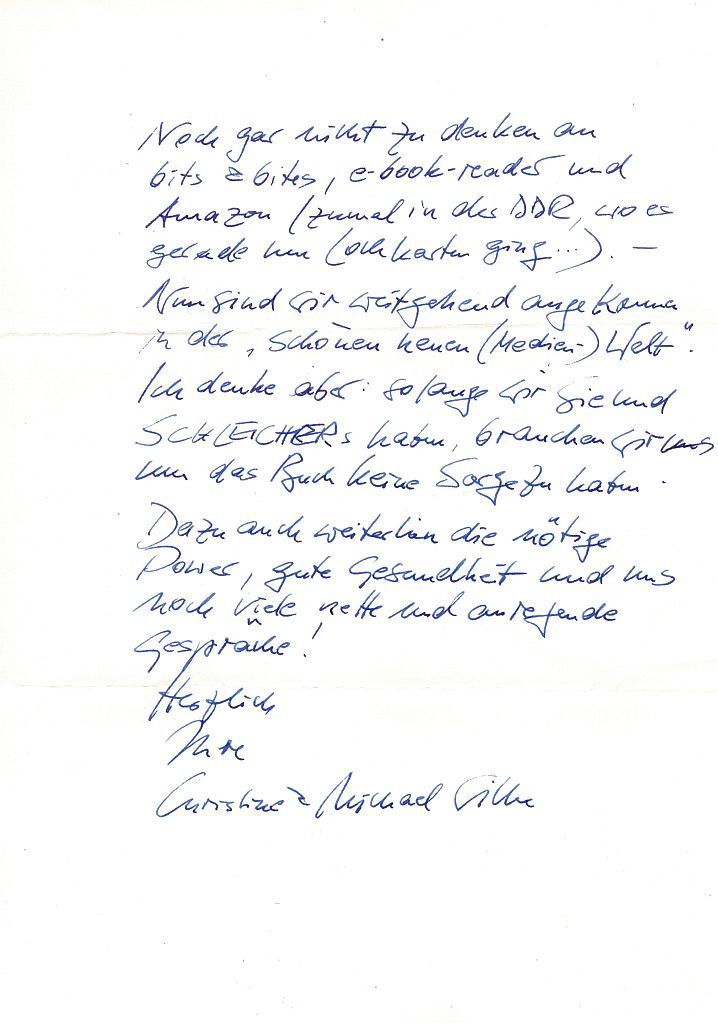 Noch gar nicht zu denken an
bits & bites, e-book-reader und
Amazon (zumal in der DDR, wo es
gerade um Lochkarten ging...). —
Nun sind wir weitgehend angekommen
in der „schönen neuen (Medien-) Welt“.
Ich denke aber: solange wir Sie und
SCHLEICHERs haben, brauchen wir uns
um das Buch keine Sorge zu haben.
Dazu auch weiterhin die nötige
Power, gute Gesundheit und uns
noch viele nette und anregende
Gespräche!
Herzlich
Ihre
Christine & Michael